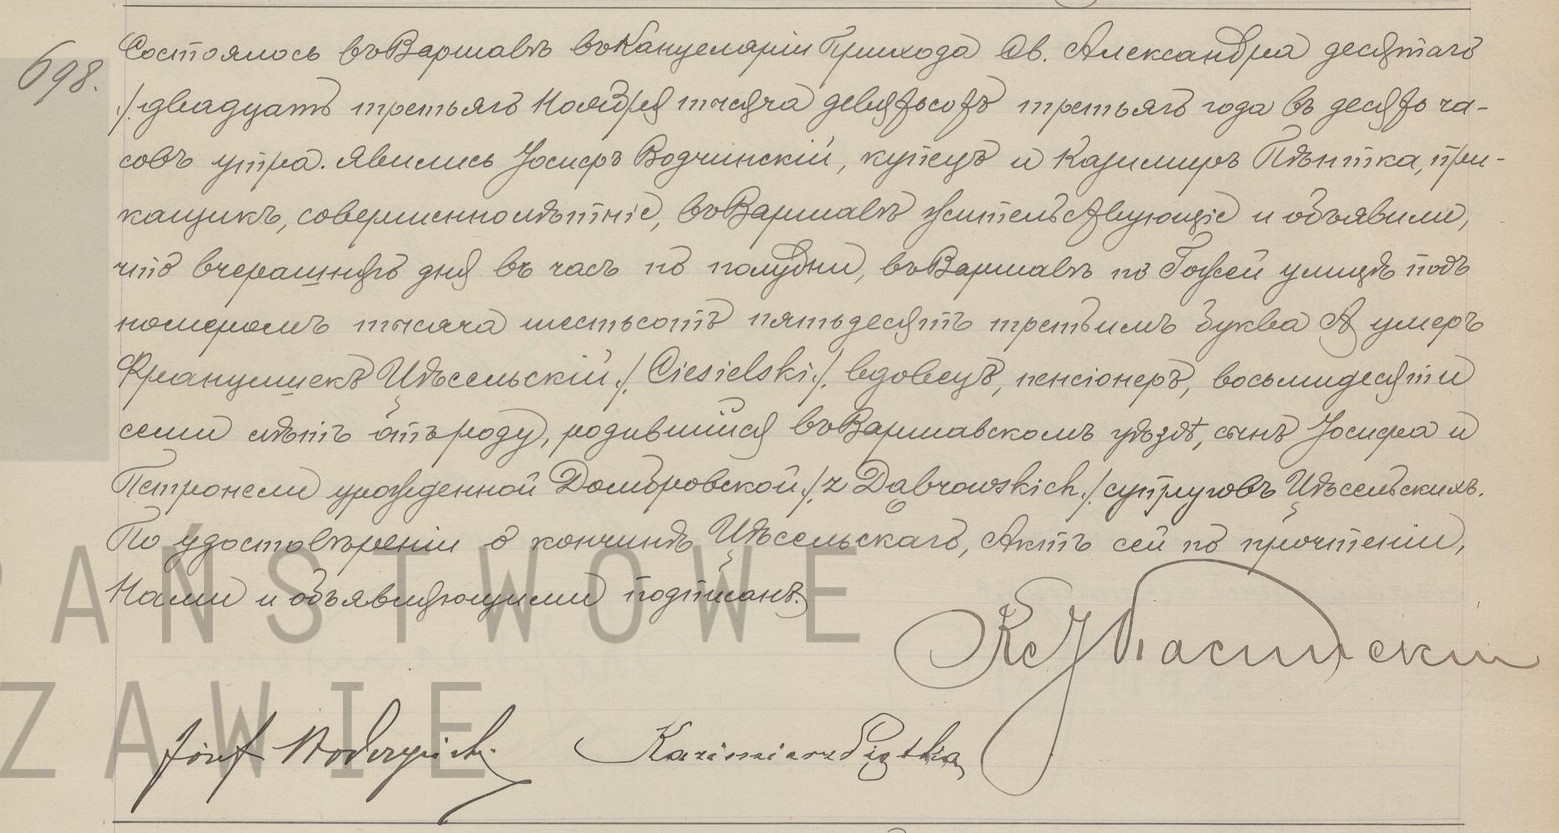 698.
Состоялось въ Варшавѣ въ Канцеляріи Прихода Св. Александра десятаго
/. двадцать третьяго Ноября тысяча девятьсотъ третьяго года въ десять ча-
совъ утра. Явились Іосифъ Водчинскій, купецъ и Казимиръ Пѣнтка, при-
кащикъ, совершеннолѣтніе, въ Варшавѣ жительствующіе и объявили,
что вчерашняго дня въ часъ по полудни, въ Варшавѣ по Гожей улицѣ подъ
номеромъ тысяча шестьсотъ пятьдесятъ третьимъ буква А умеръ
Францишекъ Цѣсельскій /. Ciesielski ./. вдовецъ, пенсіонеръ, восьмидесяти
семи лѣтъ отъ роду, родившійся въ Варшавскомъ уѣздѣ, сынъ Іосифа и
Петронели урожденной Домбровской ./. z Dąbrowskich ./. супруговъ Цѣсельскихъ.
По удостовѣреніи о кончинѣ Цѣсельскаго, Актъ сей по прочтеніи,
Нами и объявляющими подписанъ.
Кс
Józef Kazimierz Piątka
PAŃSTWOWE
ZAWIE